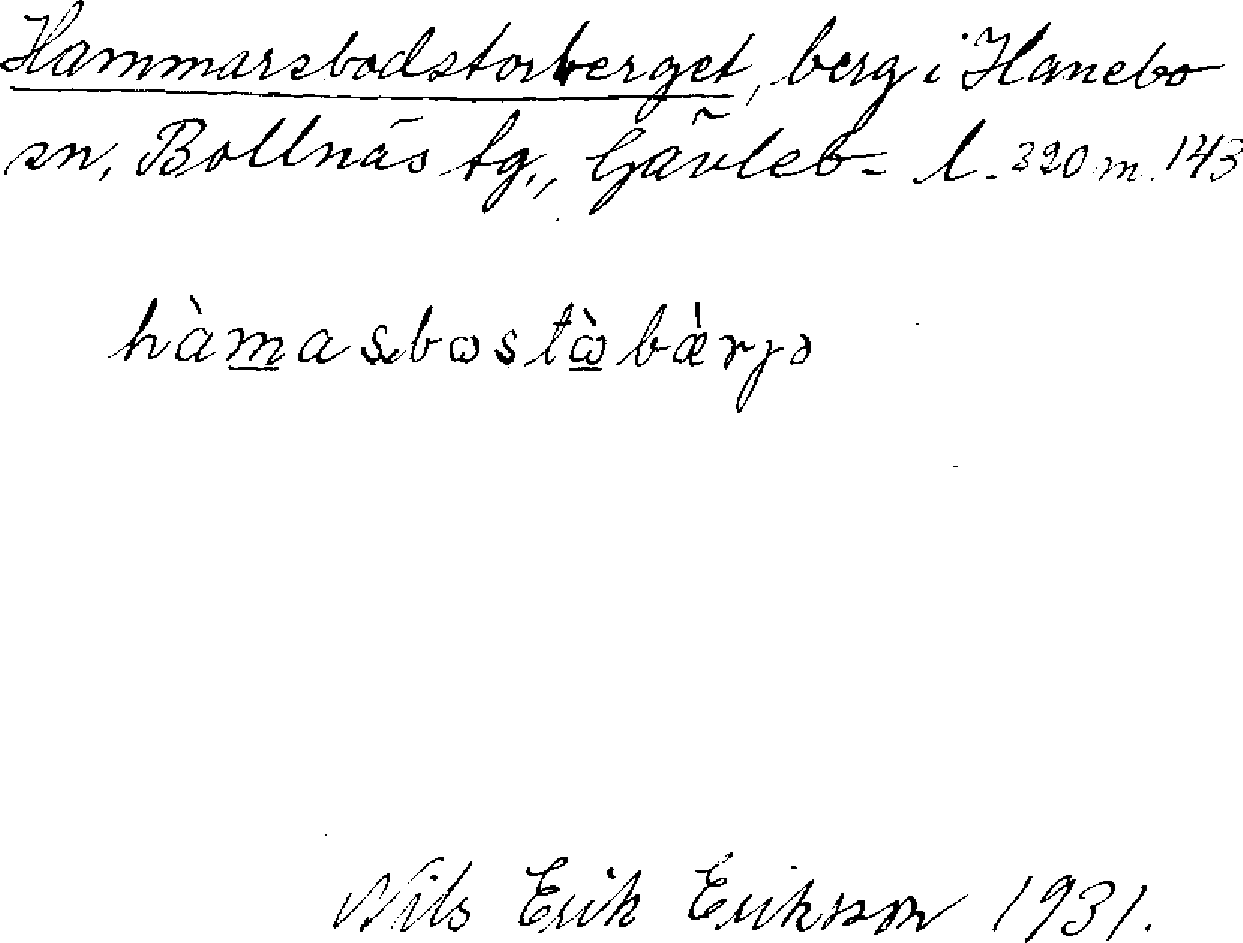 Hammarsbodstorberget, berg i Hanebo
sn, Bollnäs tg., Gävleb. l. 320 m. 143
hàmasbωstὼbä̀rjə
Nils Erik Erikson 1931.